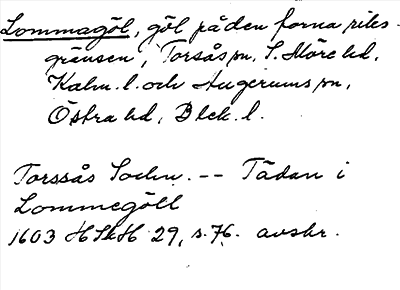 Lommagöl, göl på den forna riks-
gränsen, Torsås sn, S. Möre hd,
Kalm. l. och Augerums sn,
Östra hd, Blek. l.
Torssås Sochn. -- Tädan i
Lommegöll
1603 HSH 29, s. 76. avskr.